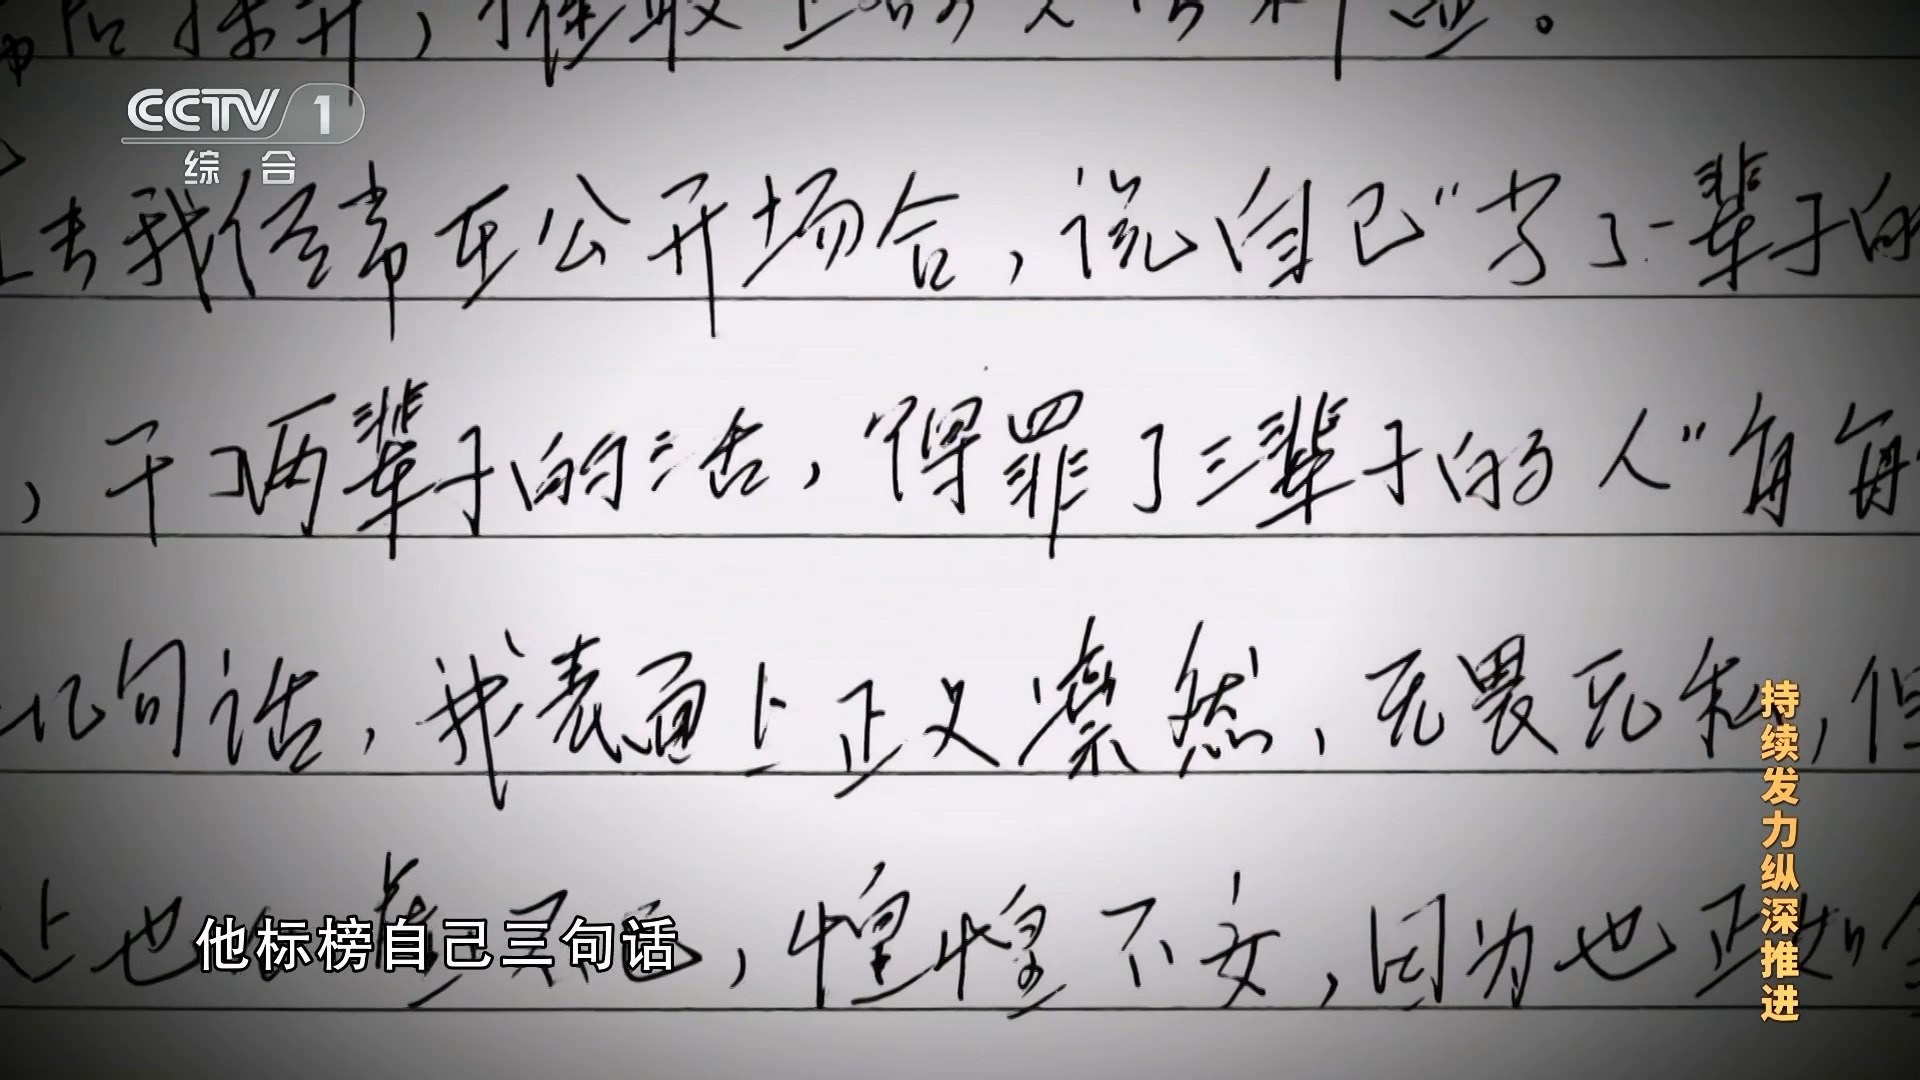 CCTV 1
综合
去我经常在公开场合，说自己“当了一辈子的
，干了两辈子的活，得罪了三辈子的人”每每
句话，我表面上正义凛然，无畏无私，但
上也心 ，惶惶不安，因为也正如
他标榜自己三句话
持续发力纵深推进